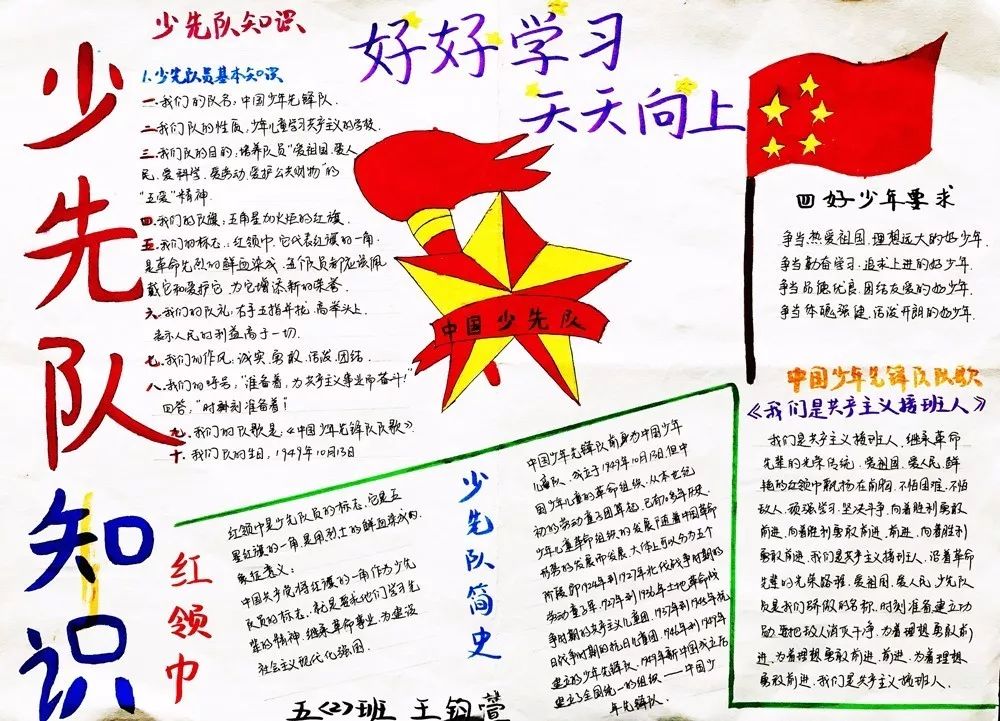 少先队知识
少先队知识
好好学习
天天向上
1.少先队员基本知识
一.我们的队名:中国少年先锋队.
二.我们队的性质,少年儿童学习共产主义的学校.
三.我们队的目的:培养队员“爱祖国、爱人
民、爱科学、爱劳动、爱护公共财物”的
“五爱”精神.
四.我们的队旗:五角星加火炬的红旗.
五.我们的标志:红领巾.它代表红旗的一角.
是革命先烈的鲜血染成.
戴它和爱护它,为它增添新的荣誉.
六.我们的队礼:右手五指并拢,高举头上.
表示人民的利益高于一切.
七.我们的作风:诚实、勇敢、活泼、团结.
八.我们的呼号:“准备着,为共产主义事业而奋斗!”
回答:“时刻准备着!
九.我们的队歌是:《中国少年先锋队队歌》.
十.我们队的生日,1949年10月13日
中国少先队
四好少年要求
争当热爱祖国、理想远大的好少年.
争当勤奋学习、追求上进的好少年.
争当品德优良、团结友爱的好少年.
争当体魄强健、活泼开朗的好少年.
中国少年先锋队队歌
《我们是共产主义接班人》
我们是共产主义接班人、继承革命
先辈的光荣传统、爱祖国、爱人民、鲜
艳的红领巾飘扬在前胸、不怕困难、不怕
敌人、顽强学习、坚决斗争、向着胜利勇敢
前进、向着胜利勇敢前进、前进、向着胜利
勇敢前进、我们是共产主义接班人、沿着革命
先辈的光荣路程、爱祖国、爱人民、少先队
员是我们骄傲的名称、时刻准备建立功
勋、要把敌人消灭干净、为着理想勇敢前
进、为着理想勇敢前进、前进、为着理想
勇敢前进、我们是共产主义接班人.
红领巾
红领巾是少先队员的标志、它是五
星红旗的一角、是用烈士的鲜血染成的.
象征意义:
中国共产党将红旗的一角作为少先
队员的标志、就是要求他们学习先
辈的精神、继承革命事业、为建设
社会主义现代化强国.
少先队简史
中国少年先锋队前身为中国少年
儿童队、成立于1949年10月13日、但中
国少年儿童的革命组织、从本世纪
初的劳动童子团算起、已有
少年儿童革命组织的发展、随着中国革命
形势的发展而发展、大体上可以分为五个
阶段、即1924年到1927年北伐战争时期的
劳动童子军、1927年到1936年土地革命战
争时期的共产主义儿童团、1937年到1945年抗
日战争时期的抗日儿童团、1946年到1949年
建立的少年先锋队、1949年新中国成立后
建立了全国统一的组织——中国少
年先锋队.
五<2>班 王钧萱